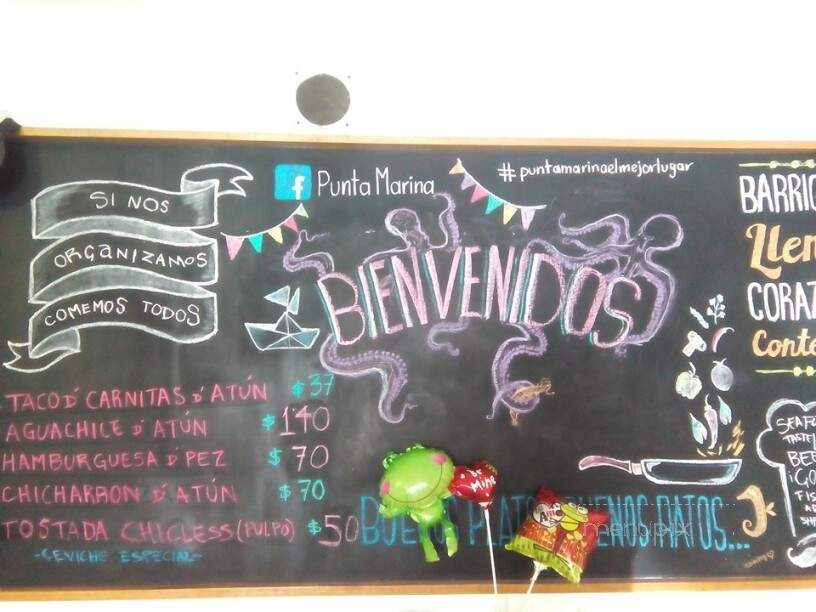 SI NOS
ORGANIZAMOS
COMEMOS TODOS
f Punta Marina
#puntamarinaelmejorlugar
BIENVENIDOS
BARRIG
Llen
CORAZ
Conte
TACO D' CARNITAS D' ATÚN $37
AGUACHILE D' ATÚN $140
HAMBURGUESA D' PEZ $70
CHICHARRON D' ATÚN $70
TOSTADA CHICLESS (PULPO) $50
-CEVICHE ESPECIAL-
BUENOS PLATOS, BUENOS RATOS...
SEAFO
TASTE
BEE
¡GO
FIS
menupix